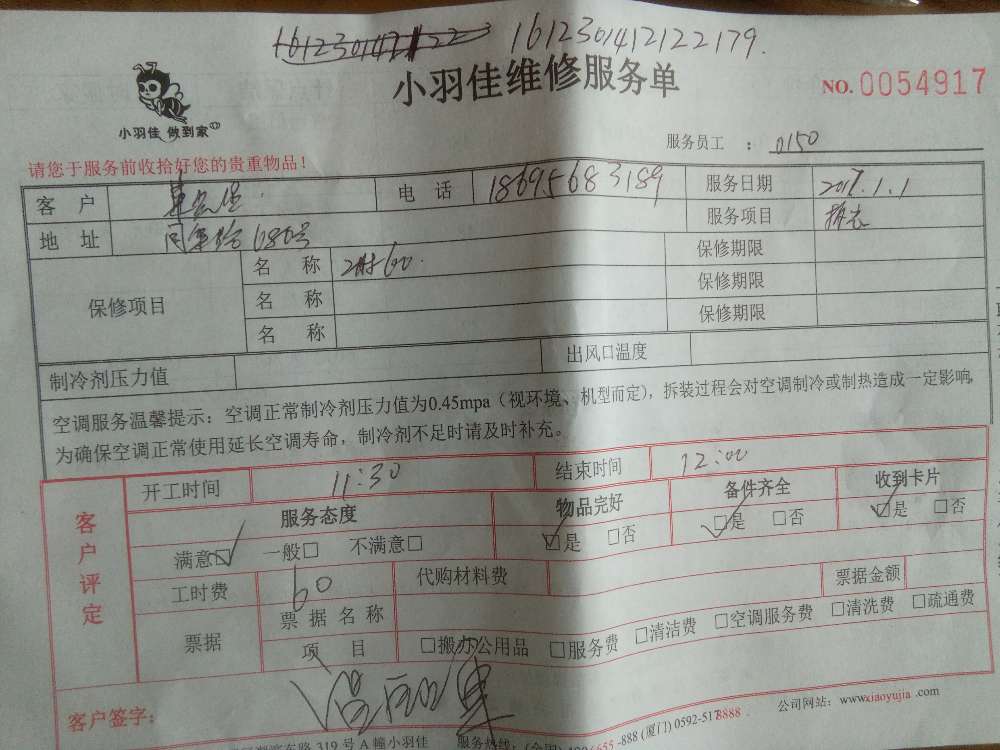 1612301412122179.
小羽佳维修服务单
NO. 0054917
小羽佳 做到家
服务员工 : 0150
请您于服务前收拾好您的贵重物品!
客 户 电 话 18695683189 服务日期 2017.1.1
地 址 680号 服务项目
保修项目 名 称 60. 保修期限
名 称 保修期限
名 称 保修期限
制冷剂压力值 出风口温度
空调服务温馨提示:空调正常制冷剂压力值为0.45mpa(视环境、机型而定),拆装过程会对空调制冷或制热造成一定影响,
为确保空调正常使用延长空调寿命,制冷剂不足时请及时补充。
客户评定
开工时间 11:30 结束时间 12:00
服务态度 物品完好 备件齐全 收到卡片
满意☑ 一般□ 不满意□ ☑是 □否 ☑是 □否 ☑是 □否
工时费 60 代购材料费 票据金额
票据 票 据 名 称
项 目 □搬办公用品 □服务费 □清洁费 □空调服务费 □清洗费 □疏通费
客户签字:
公司网站:www.xiaoyujia.com
东路 319 号 A 幢小羽佳 服务热线:(全国) 655-888 (厦门) 0592-5178888.